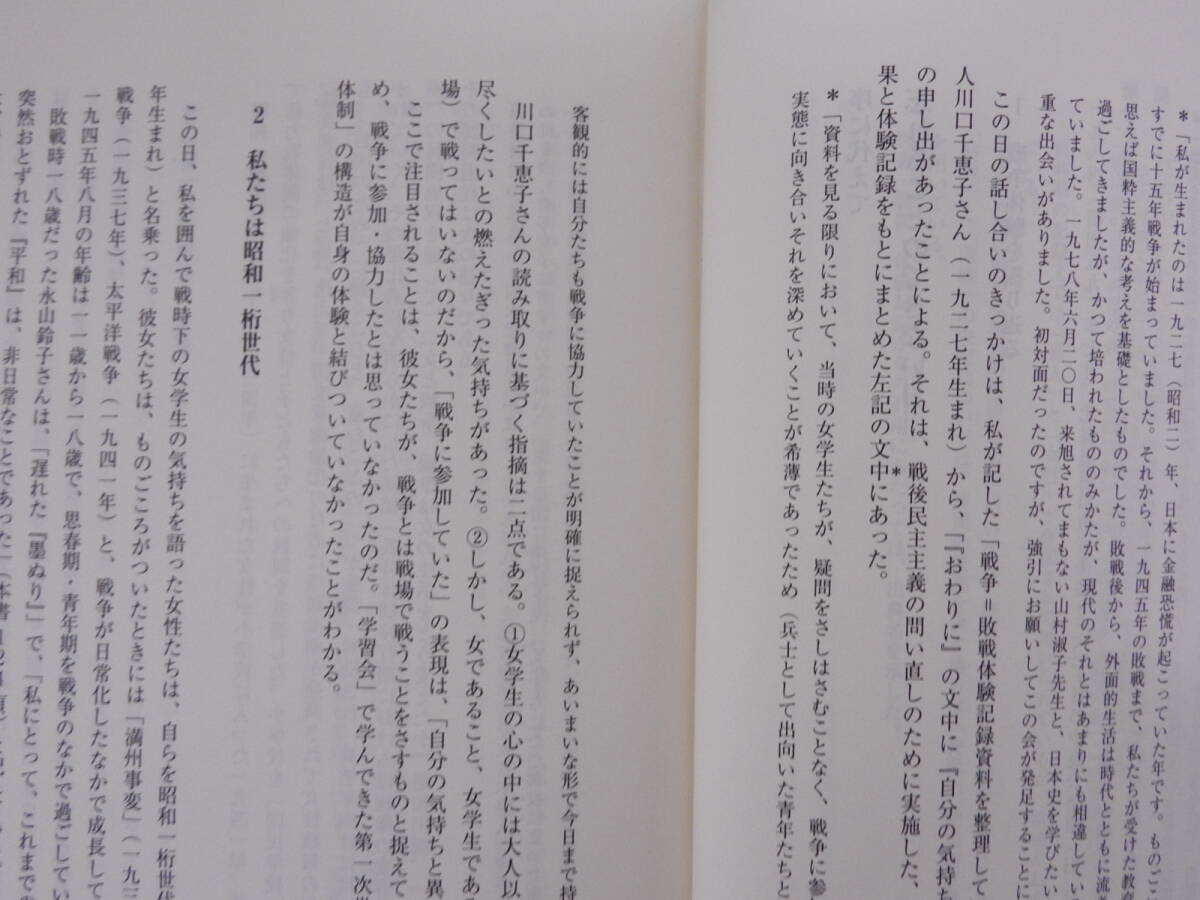 *「私が生まれたのは一九二七（昭和二）年、日本に金融恐慌が起こっていた年です。ものごこ
すでに十五年戦争が始まっていました。それから、一九四五年の敗戦まで、私たちが受けた教育
思えば国粋主義的な考えを基礎としたものでした。敗戦後から、外面的生活は時代とともに流
過ごしてきましたが、かつて培われたもののみかたが、現代のそれとはあまりにも相違してい
ていました。一九七八年六月二〇日、来旭されてまもない山村淑子先生と、日本史を学びたい
重な出会いがありました。初対面だったのですが、強引にお願いしてこの会が発足することに
この日の話し合いのきっかけは、私が記した「戦争＝敗戦体験記録資料を整理して
人川口千恵子さん（一九二七年生まれ）から、「『おわりに』の文中に『自分の気持ち
の申し出があったことによる。それは、戦後民主主義の問い直しのために実施した、
果と体験記録をもとにまとめた左記の文中*にあった。
*「資料を見る限りにおいて、当時の女学生たちが、疑問をさしはさむことなく、戦争に参
実態に向き合いそれを深めていくことが希薄であったため（兵士として出向いた青年たちと
客観的には自分たちも戦争に協力していたことが明確に捉えられず、あいまいな形で今日まで持
川口千恵子さんの読み取りに基づく指摘は二点である。①女学生の心の中には大人以
尽くしたいとの燃えたぎった気持ちがあった。②しかし、女であること、女学生であ
場）で戦ってはいないのだから、「戦争に参加していた」の表現は、「自分の気持ちと異
ここで注目されることは、彼女たちが、戦争とは戦場で戦うことをさすものと捉えて
め、戦争に参加・協力したとは思っていなかったのだ。「学習会」で学んできた第一次
体制」の構造が自身の体験と結びついていなかったことがわかる。
2 私たちは昭和一桁世代
この日、私を囲んで戦時下の女学生の気持ちを語った女性たちは、自らを昭和一桁世代
年生まれ）と名乗った。彼女たちは、ものごころがついたときには「満州事変」（一九三
戦争（一九三七年）、太平洋戦争（一九四一年）と、戦争が日常化したなかで成長して
一九四五年八月の年齢は一一歳から一八歳で、思春期・青年期を戦争のなかで過ごしてい
敗戦時一八歳だった永山鈴子さんは、「遅れた『墨ぬり』」で、「私にとって、これまでの
突然おとずれた『平和』は、非日常なことであった」（本書